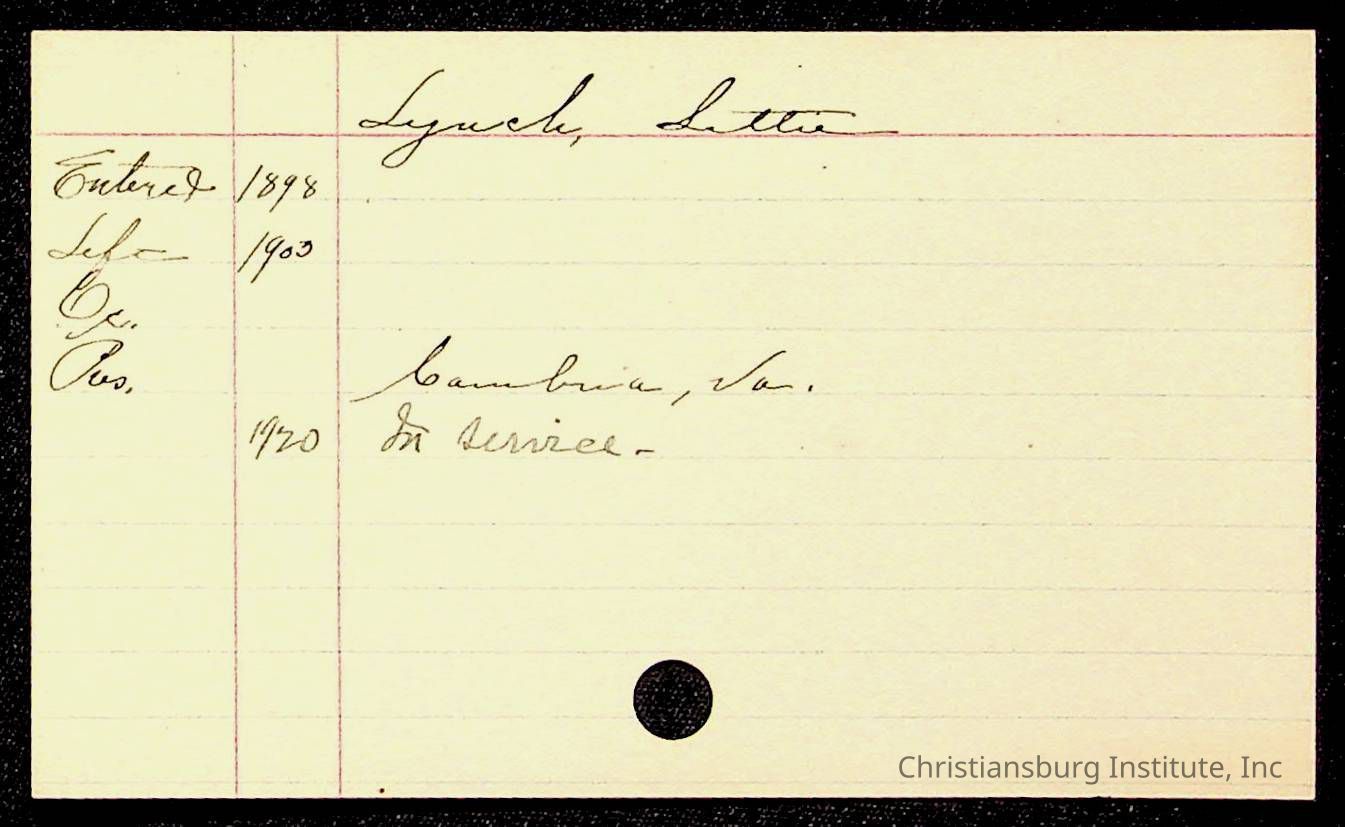 Lynch, Lettie
Entered 1898
Left 1903
Oc.
Pres. Cambria, Va.
1920 In service -
Christiansburg Institute, Inc